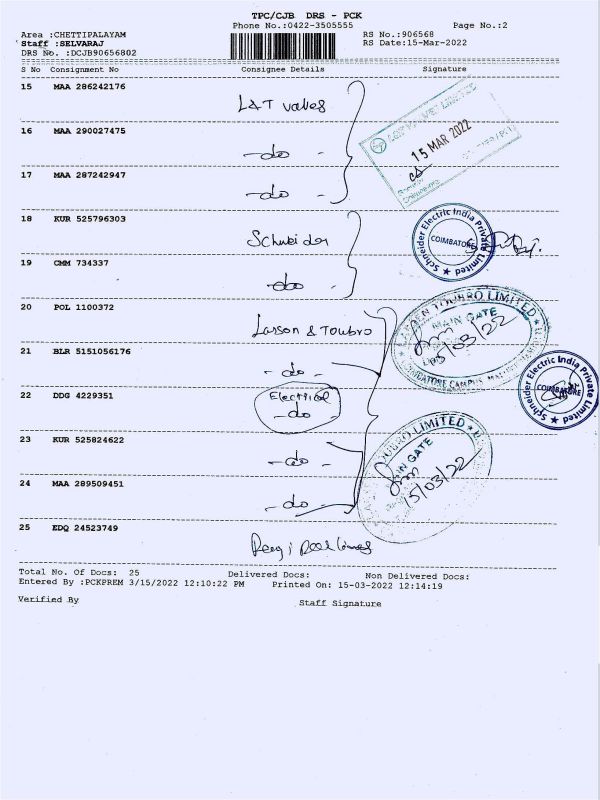 TPC/CJB DRS - PCK
Phone No.:0422-3505555
Page No.:2
Area :CHETTIPALAYAM
RS No.:906568
Staff :SELVARAJ
RS Date:15-Mar-2022
DRS No. :DCJB90656802
S No Consignment No Consignee Details Signature
15 MAA 286242176
L&T valves
15 MAR 2022
16 MAA 290027475
-do-
17 MAA 287242947
-do-
18 KUR 525796303
Schneider
Schneider Electric India Private Limited
COIMBATORE
19 CMM 734337
-do-
20 POL 1100372
Larson & Toubro
LARSEN TOUBRO LIMITED
MAIN GATE
15/03/22
COIMBATORE CAMPUS
21 BLR 5151056176
-do-
Schneider Electric India Private Limited
COIMBATORE
22 DDG 4229351
Electrical
-do-
23 KUR 525824622
-do-
TOUBRO LIMITED
MAIN GATE
15/03/22
24 MAA 289509451
-do-
25 EDQ 24523749
Total No. Of Docs: 25 Delivered Docs: Non Delivered Docs:
Entered By :PCKPREM 3/15/2022 12:10:22 PM Printed On: 15-03-2022 12:14:19
Verified By Staff Signature